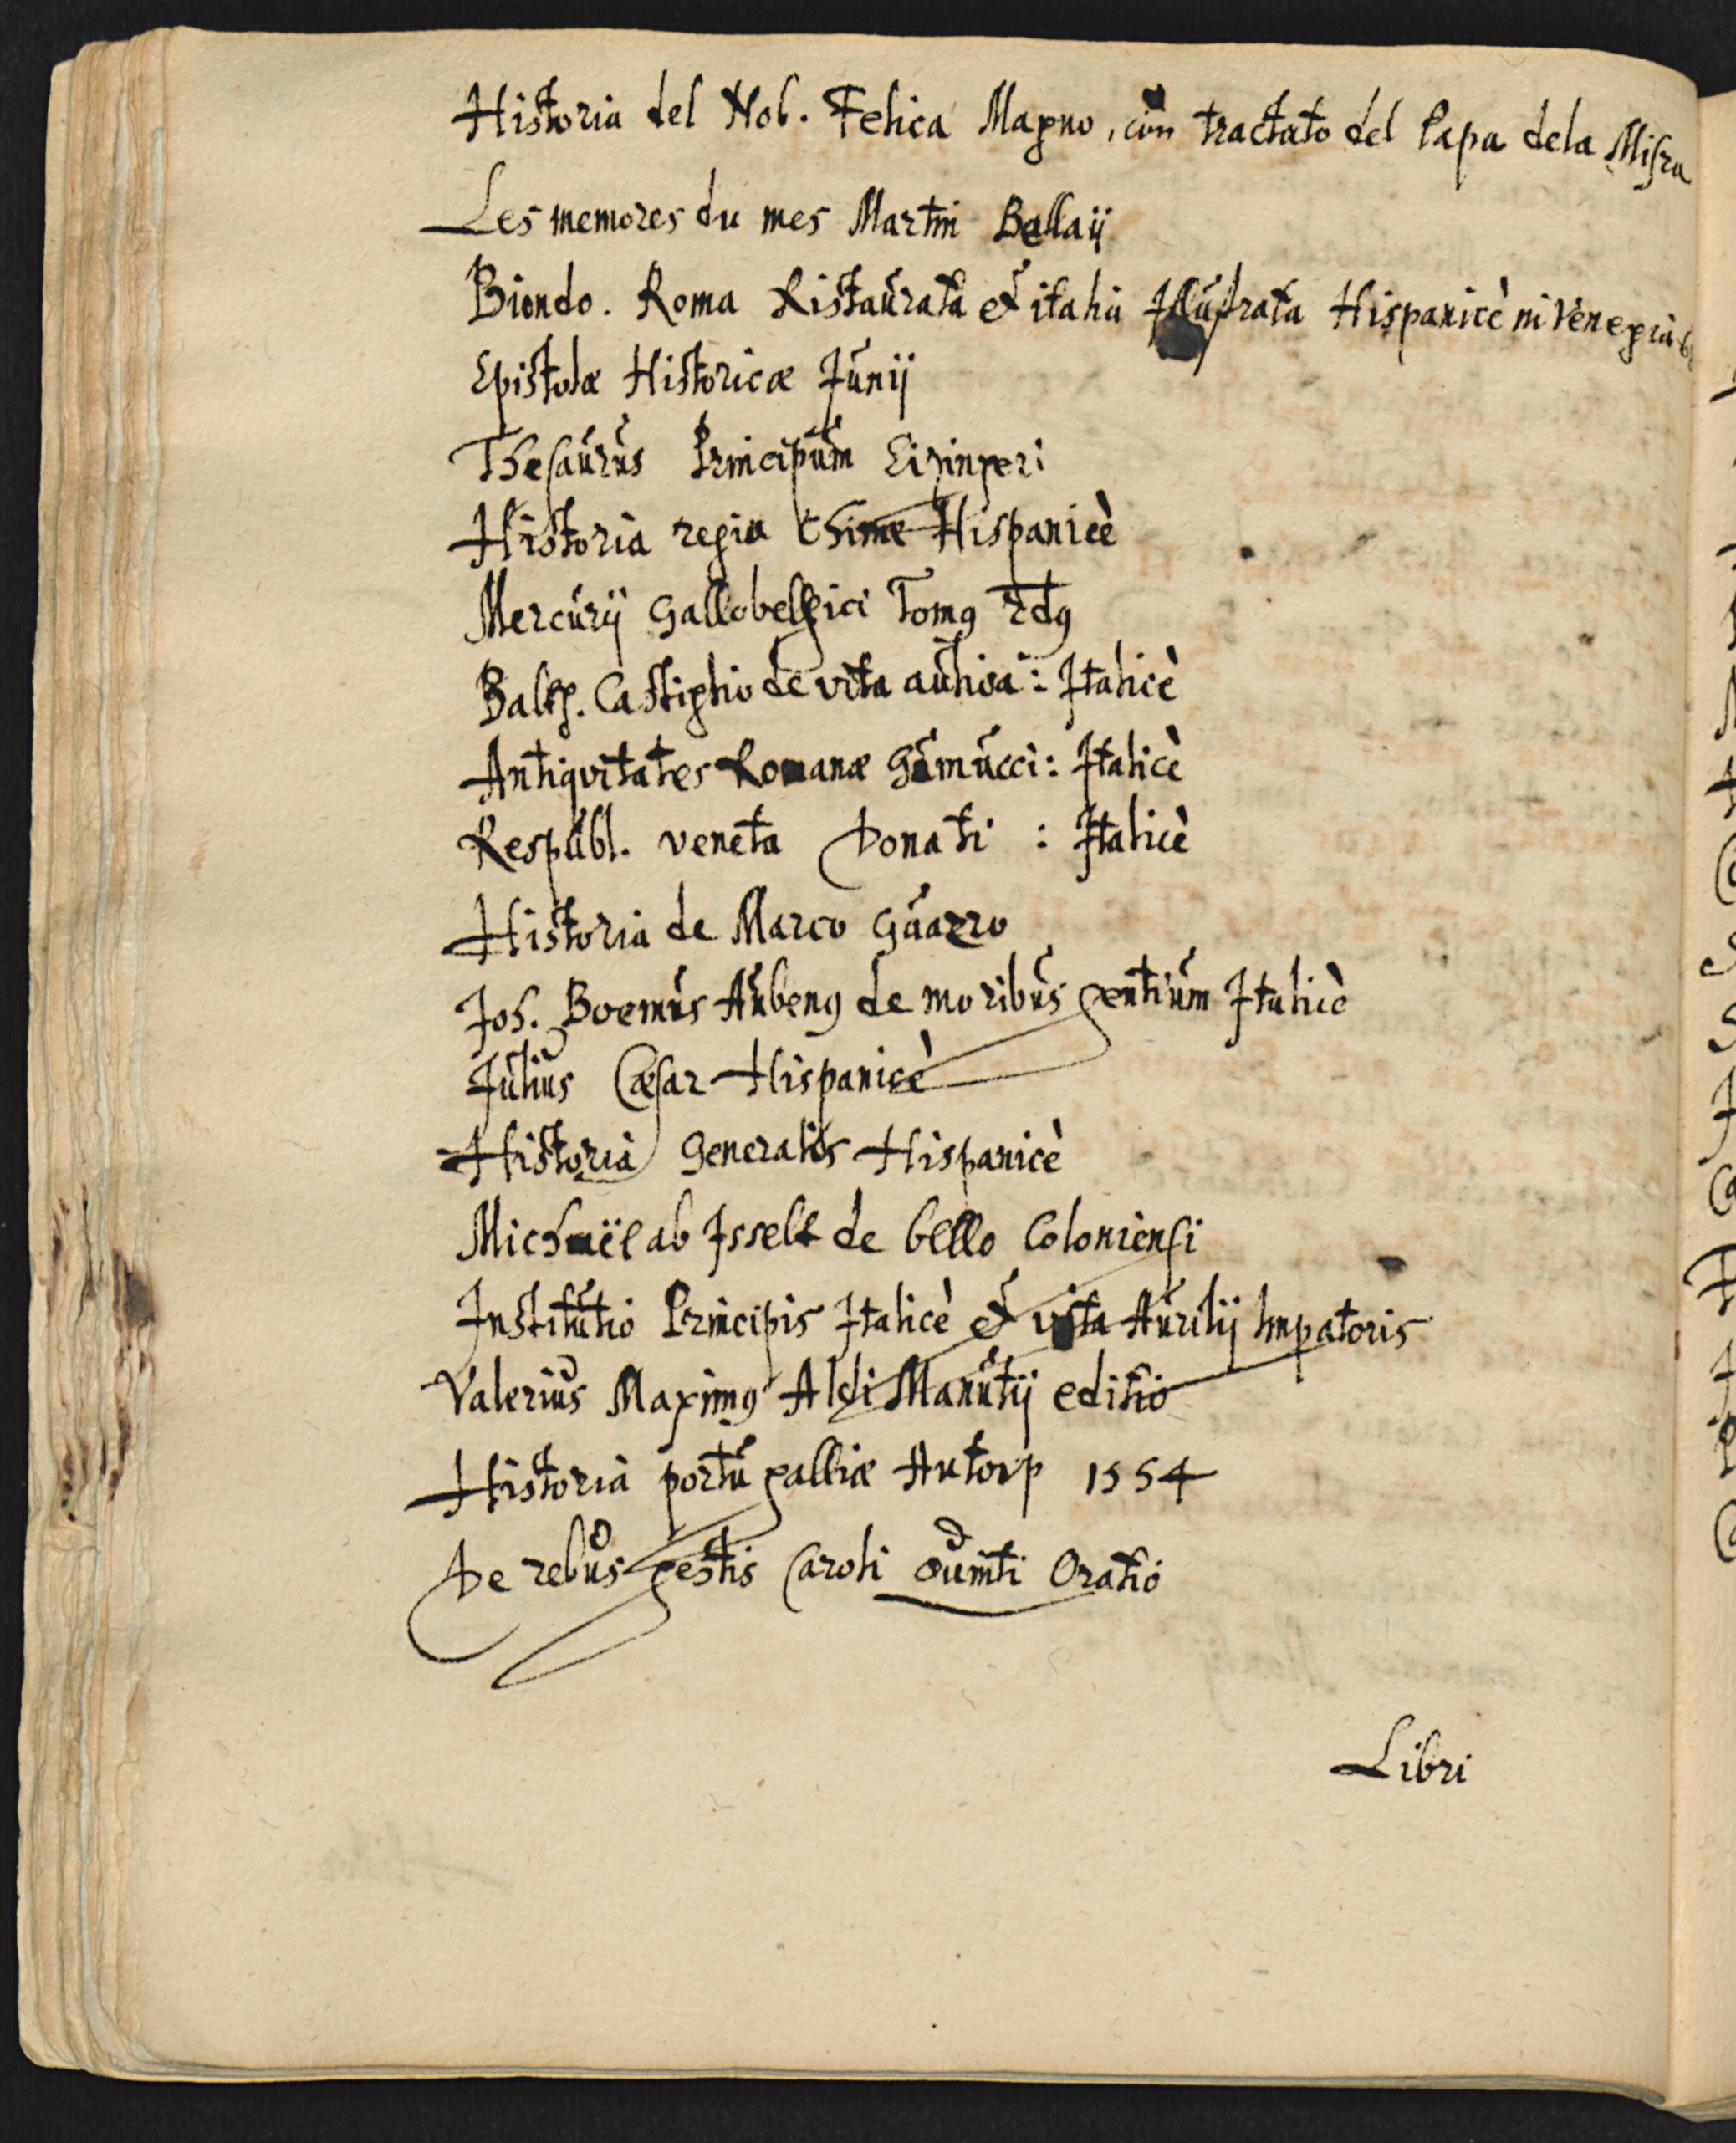 Historia del Nob. Felica Magno, con tractato del Papa dela Misra
Les memores du mes Martin Bellaij
Biondo. Roma Ristaurata et italia Illustrata Hispanicè in Venegia
Epistolæ Historicæ Junij
Thesaurus Principum Eizingeri
Historia regia Chinæ Hispanicè
Mercurij Gallobelgici Tomg 2dg
Balth. Castiglio de vita aulica: Italicè
Antiqvitates Romanæ Gamucci: Italicè
Respubl. veneta Donati: Italicè
Historia de Marco Guazzo
Joh. Boemus Aubeng de moribus gentium Italicè
Julius Cæsar Hispanicè
Historia Generalis Hispanicè
Michaël ab Isselt de bello Coloniensi
Institutio Principis Italicè et vita Aurilij Impatoris
Valerius Maximg Aldi Manutij editio
Historia portugalliæ Antorp 1554
De rebus gestis Caroli Quinti Oratio
Libri